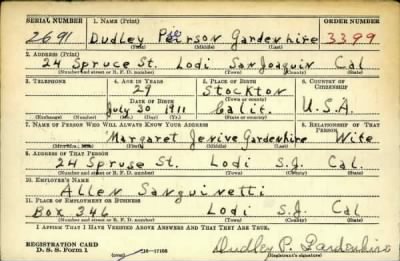 SERIAL NUMBER 1. NAME (Print) ORDER NUMBER
2691 Dudley Pierson Gardenhire 3399
(First) (Middle) (Last)
2. ADDRESS (Print)
24 Spruce St. Lodi San Joaquin Cal
(Number and street or R. F. D. number) (Town) (County) (State)
3. TELEPHONE 4. AGE IN YEARS 5. PLACE OF BIRTH 6. COUNTRY OF CITIZENSHIP
29 Stockton
DATE OF BIRTH (Town or county)
July 30 1911 Calif. U.S.A.
(Exchange) (Number) (Mo.) (Day) (Yr.) (State or country)
7. NAME OF PERSON WHO WILL ALWAYS KNOW YOUR ADDRESS 8. RELATIONSHIP OF THAT PERSON
Margaret Jenive Gardenhire Wife
(First) (Middle) (Last)
9. ADDRESS OF THAT PERSON
24 Spruse St. Lodi S.J. Cal.
(Number and street or R. F. D. number) (Town) (County) (State)
10. EMPLOYER'S NAME
Allen Sanguinetti
11. PLACE OF EMPLOYMENT OR BUSINESS
Box 346 Lodi S.J. Cal
(Number and street or R. F. D. number) (Town) (County) (State)
I AFFIRM THAT I HAVE VERIFIED ABOVE ANSWERS AND THAT THEY ARE TRUE.
REGISTRATION CARD
D. S. S. Form 1 (over) 16—17105 Dudley P. Gardenhire
(Registrant's signature)